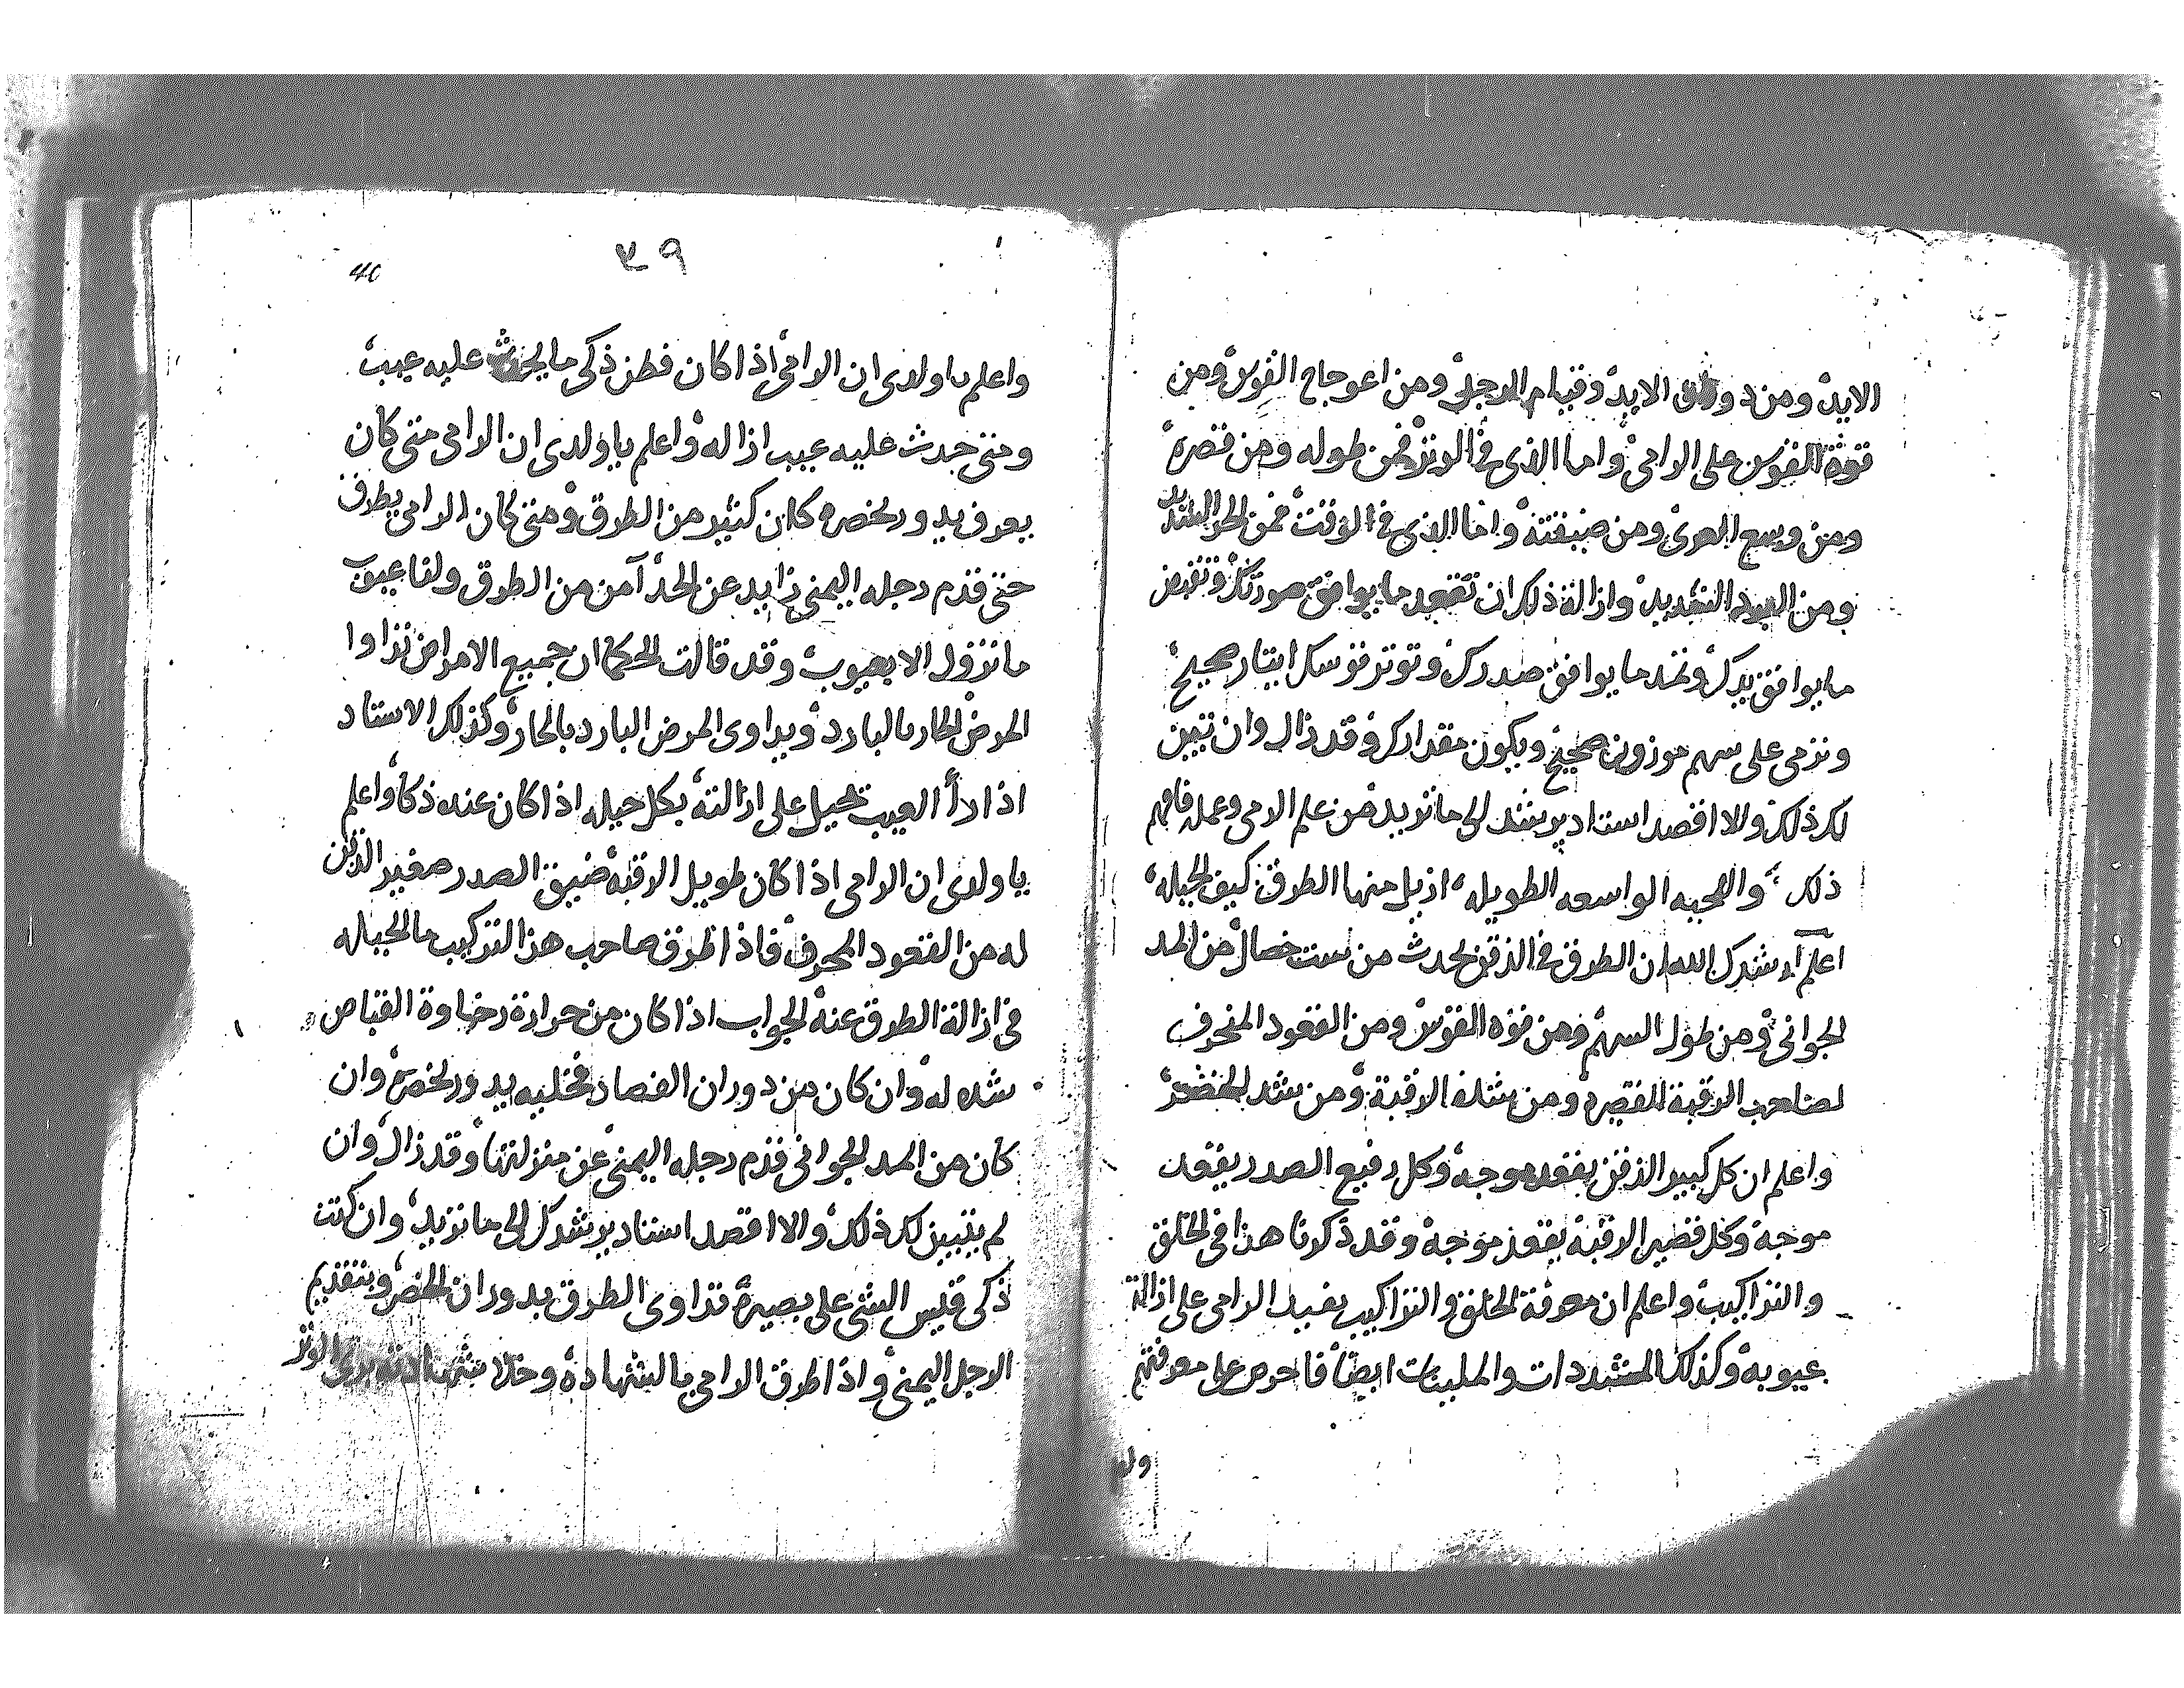 الايد ومن دوران الايد وقيام الرجل ومن اعوجاج القوس ومن
قوة القوس على الرامى واما الذى فى الوتر فمن طوله ومن قصره
ومن وسع العرى ومن ضيقته واما الذى فى الوقت فمن الحر الشديد
ومن البرد الشديد وازالة ذلك ان تقعد ما يوافق صورتك وتقبض
ما يوافق يدك وتمد ما يوافق صدرك وتوتر قوسك ايتار صحيح
وترمى على سهم موزون صحيح ويكون مقدارك وقد زال وان تبين
لك ذلك والا اقصد استاد يرشدك الى ما تريد من علم الرمى وعمله فافهم
ذلك والمحبه الواسعه الطويله ازيل منها الطرق كيف الحيله
اعلم ارشدك الله ان الطرق فى الذقن يحدث من ست خصال من المد
الجوانى ومن طول السهم ومن قوه القوس ومن القعود المنحرف
لصاحب الرقبة القصيره ومن شدة الرقبة ومن شد الخنصر
واعلم ان كل كبير الذقن يقعد موجه وكل رفيع الصدر يقعد
موجه وكل قصير الرقبة يقعد موجه وقد ذكرنا هذا فى الخلق
والتراكيب واعلم ان معرفة الخلق والتراكيب يفيد الرامى على ازالة
عيوبه وكذلك المشددات والملينات ايضا فاحرص على معرفتهم
٣٩
40
واعلم ياولدى ان الرامى اذا كان فطن ذكى ما يحدث عليه عيب
ومتى حدث عليه عيب ازاله واعلم ياولدى ان الرامى متى كان
يعرف يدور بخصره كان كثير من الطرق ومتى كان الرامى يطرق
حتى قدم رجله اليمنى زايد عن الحد آمن من الطرق ولنا عيوب
ما تزول الا بعيوب وقد قالت الحكما ان جميع الامراض تداوا
المرض الحار بالبارد ويداوى المرض البارد بالحار وكذلك الاستاد
اذا راأ العيب تحيل على ازالته بكل حيله اذا كان عنده ذكا واعلم
ياولدى ان الرامى اذا كان طويل الرقبه ضيق الصدر صغير الذقن
له من القعود المحرف فاذا اطرق صاحب هذا التركيب ما الحياله
فى ازالة الطرق عنه الجواب اذا كان من حرارة رخاوة القباض
شده له وان كان من دوران الفصاد فخليه يدور بخصره وان
كان من المد الجوانى قدم رجله اليمنى عن منزلتها وقد زال وان
لم يتبين لك ذلك والا اقصد استاد يرشدك الى ما تريد وان كنت
ذكى قيس الشى على بصيرة تداوى الطرق بدوران الخصر وبتقديم
الرجل اليمنى واذا اطرق الرامى بالشهادة وخلا شهادته برى الوتر